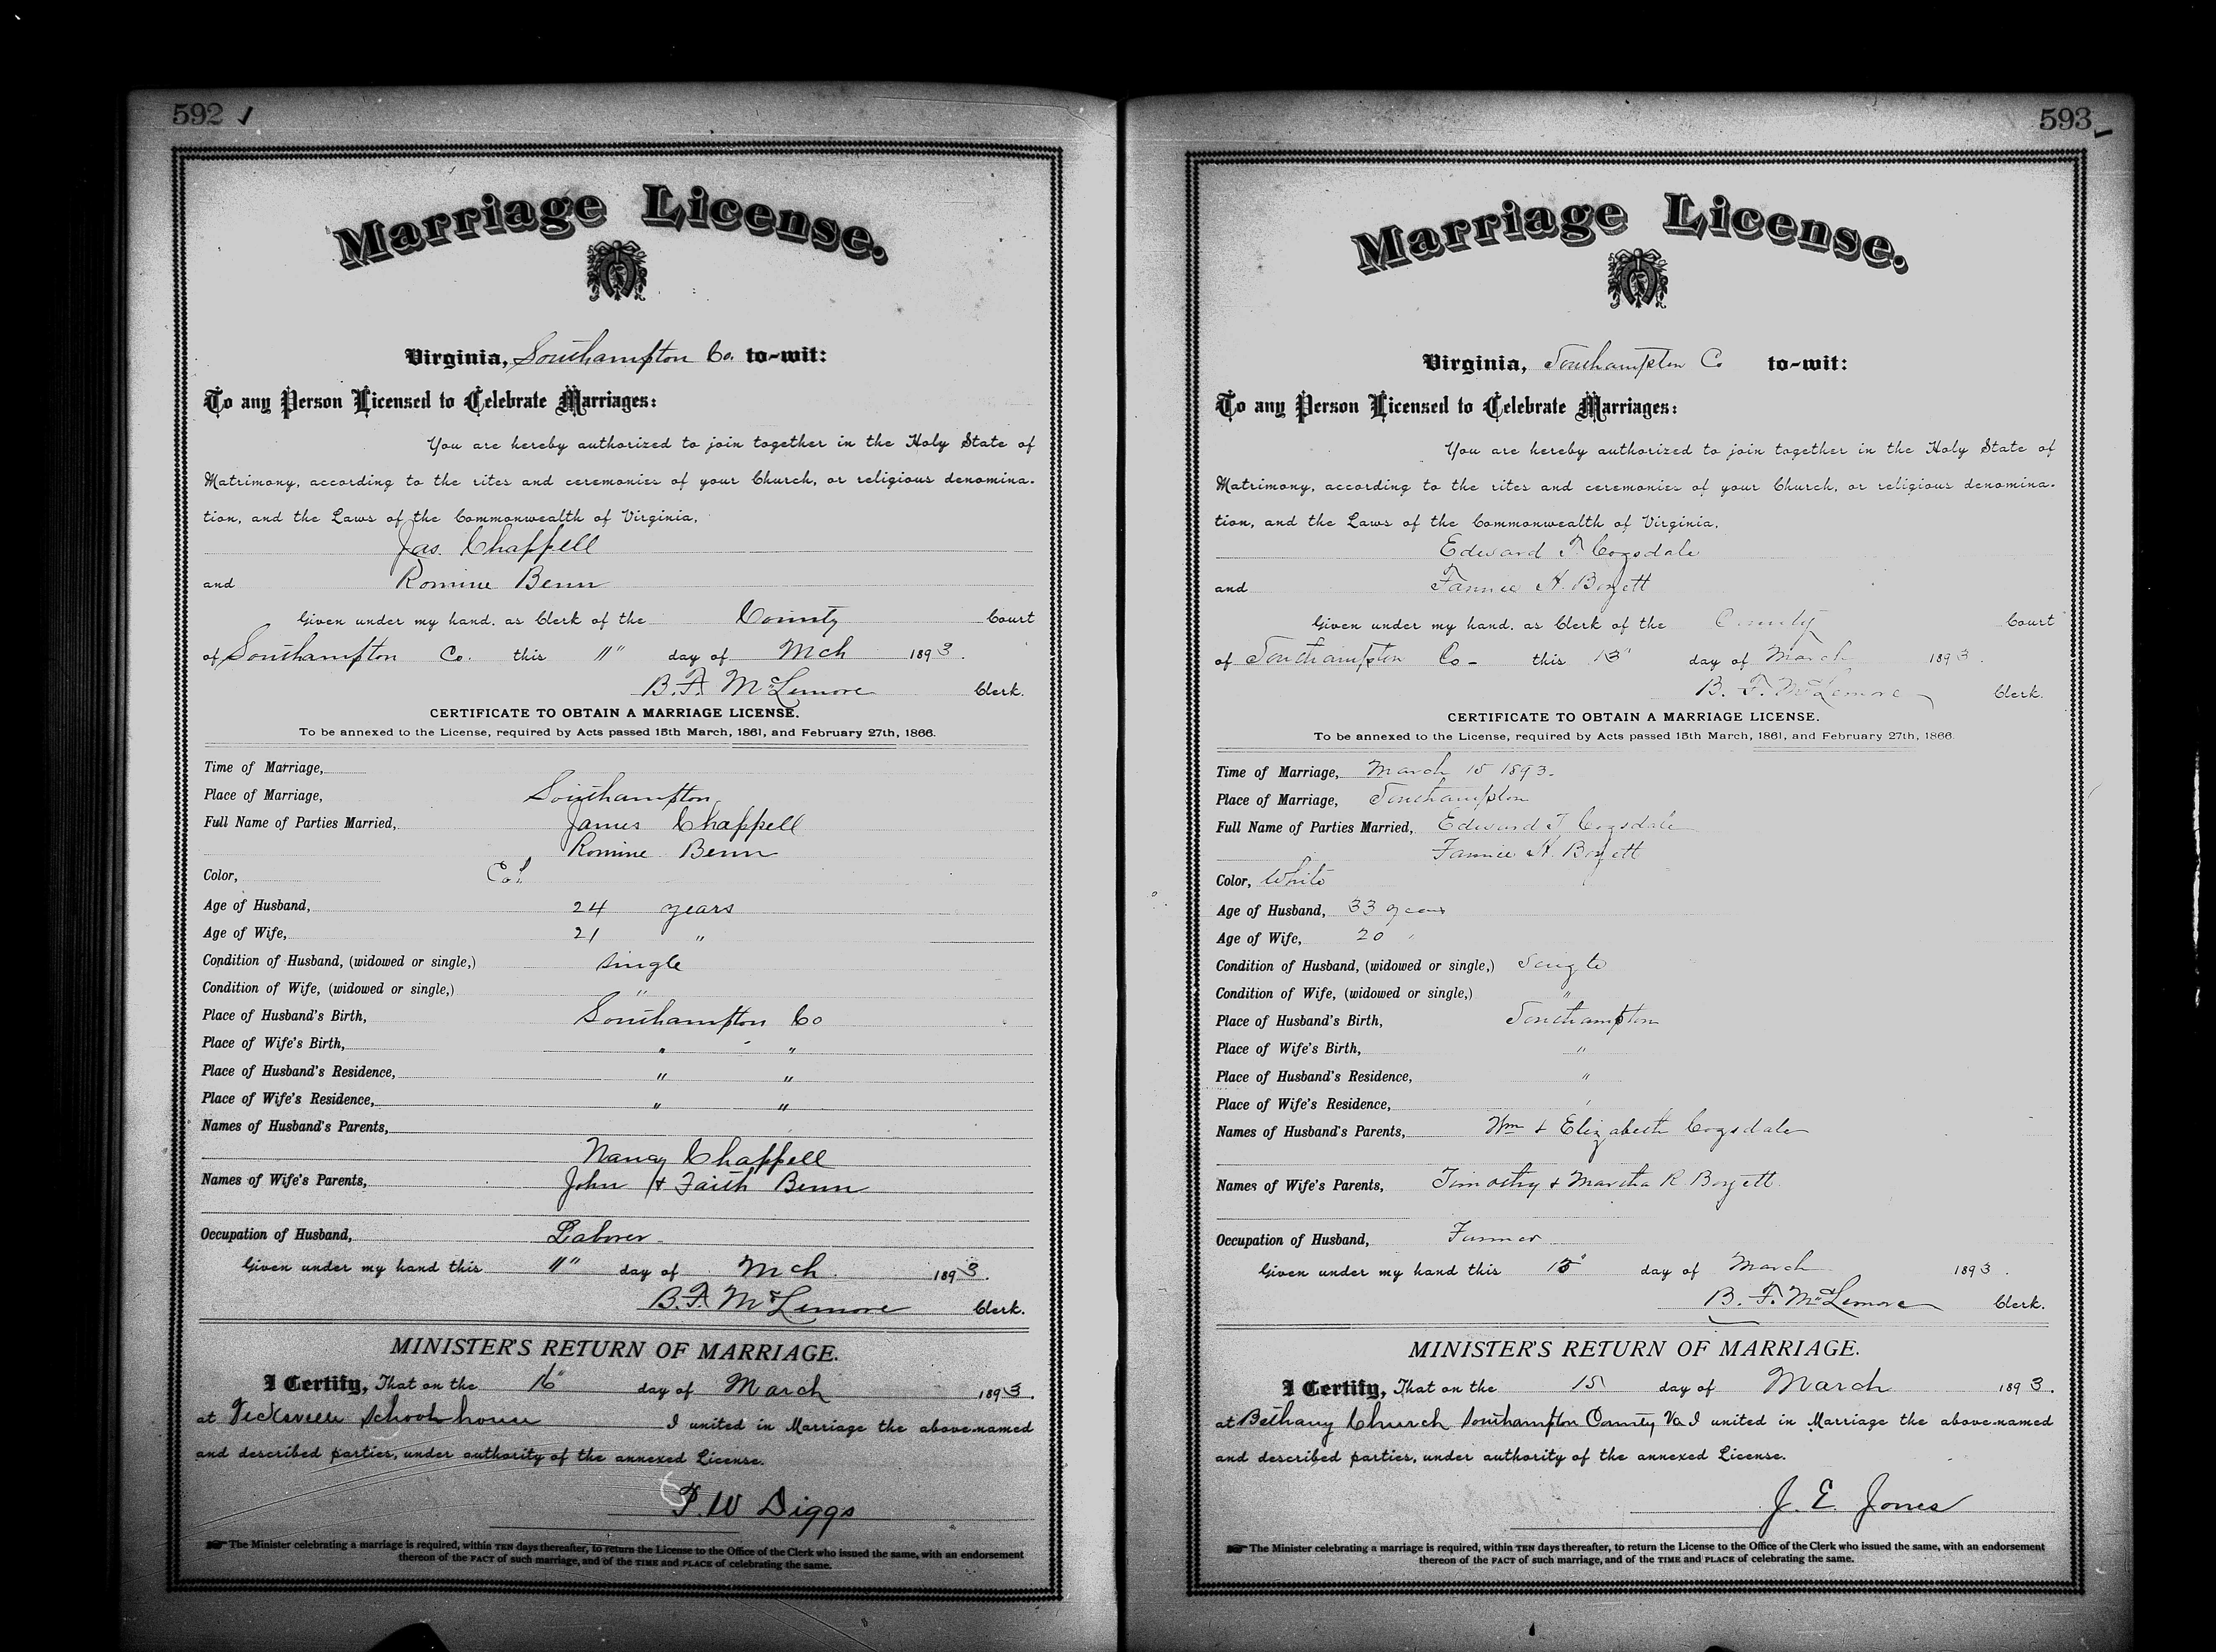 592
Marriage License.
Virginia, Southampton Co. to-wit:
To any Person Licensed to Celebrate Marriages:
You are hereby authorized to join together in the Holy State of
Matrimony, according to the rites and ceremonies of your Church, or religious denomina-
tion, and the Laws of the Commonwealth of Virginia,
Jas. Chappell
and Romine Benn
Given under my hand, as Clerk of the County Court
of Southampton Co. this 11" day of Mch 1893.
B. F. McLemore Clerk.
CERTIFICATE TO OBTAIN A MARRIAGE LICENSE.
To be annexed to the License, required by Acts passed 15th March, 1861, and February 27th, 1866.
Time of Marriage,
Place of Marriage, Southampton
Full Name of Parties Married, James Chappell
Romine Benn
Color, Col.
Age of Husband, 24 years
Age of Wife, 21 "
Condition of Husband, (widowed or single,) single
Condition of Wife, (widowed or single,) "
Place of Husband's Birth, Southampton Co
Place of Wife's Birth, " "
Place of Husband's Residence, " "
Place of Wife's Residence, " "
Names of Husband's Parents,
Nancy Chappell
Names of Wife's Parents, John & Faith Benn
Occupation of Husband, Laborer
Given under my hand this 11" day of Mch. 1893.
B. F. McLemore Clerk.
MINISTER'S RETURN OF MARRIAGE.
I Certify, That on the 16" day of March 1893.
at School house I united in Marriage the above-named
and described parties, under authority of the annexed License.
P. W Diggs
The Minister celebrating a marriage is required, within TEN days thereafter, to return the License to the Office of the Clerk who issued the same, with an endorsement
thereon of the FACT of such marriage, and of the TIME and PLACE of celebrating the same.
593
Marriage License.
Virginia, Southampton Co to-wit:
To any Person Licensed to Celebrate Marriages:
You are hereby authorized to join together in the Holy State of
Matrimony, according to the rites and ceremonies of your Church, or religious denomina-
tion, and the Laws of the Commonwealth of Virginia,
Edward T. Cogsdale
and Fannie H. Bozett
Given under my hand, as Clerk of the County Court
of Southampton Co - this 13" day of March 1893.
B. F. McLemore Clerk.
CERTIFICATE TO OBTAIN A MARRIAGE LICENSE.
To be annexed to the License, required by Acts passed 15th March, 1861, and February 27th, 1866.
Time of Marriage, March 15 1893.
Place of Marriage, Southampton
Full Name of Parties Married, Edward T Cogsdale
Fannie H. Bozett
Color, White
Age of Husband, 33 years
Age of Wife, 20 "
Condition of Husband, (widowed or single,) Single
Condition of Wife, (widowed or single,) "
Place of Husband's Birth, Southampton
Place of Wife's Birth, "
Place of Husband's Residence, "
Place of Wife's Residence, "
Names of Husband's Parents, Wm & Elizabeth Cogsdale
Names of Wife's Parents, Timothy & Martha R. Bozett
Occupation of Husband, Farmer
Given under my hand this 13" day of March 1893.
B. F. McLemore Clerk.
MINISTER'S RETURN OF MARRIAGE.
I Certify, That on the 15 day of March 1893.
at Bethany Church Southampton County Va I united in Marriage the above-named
and described parties, under authority of the annexed License.
J. E. Jones
The Minister celebrating a marriage is required, within TEN days thereafter, to return the License to the Office of the Clerk who issued the same, with an endorsement
thereon of the FACT of such marriage, and of the TIME and PLACE of celebrating the same.